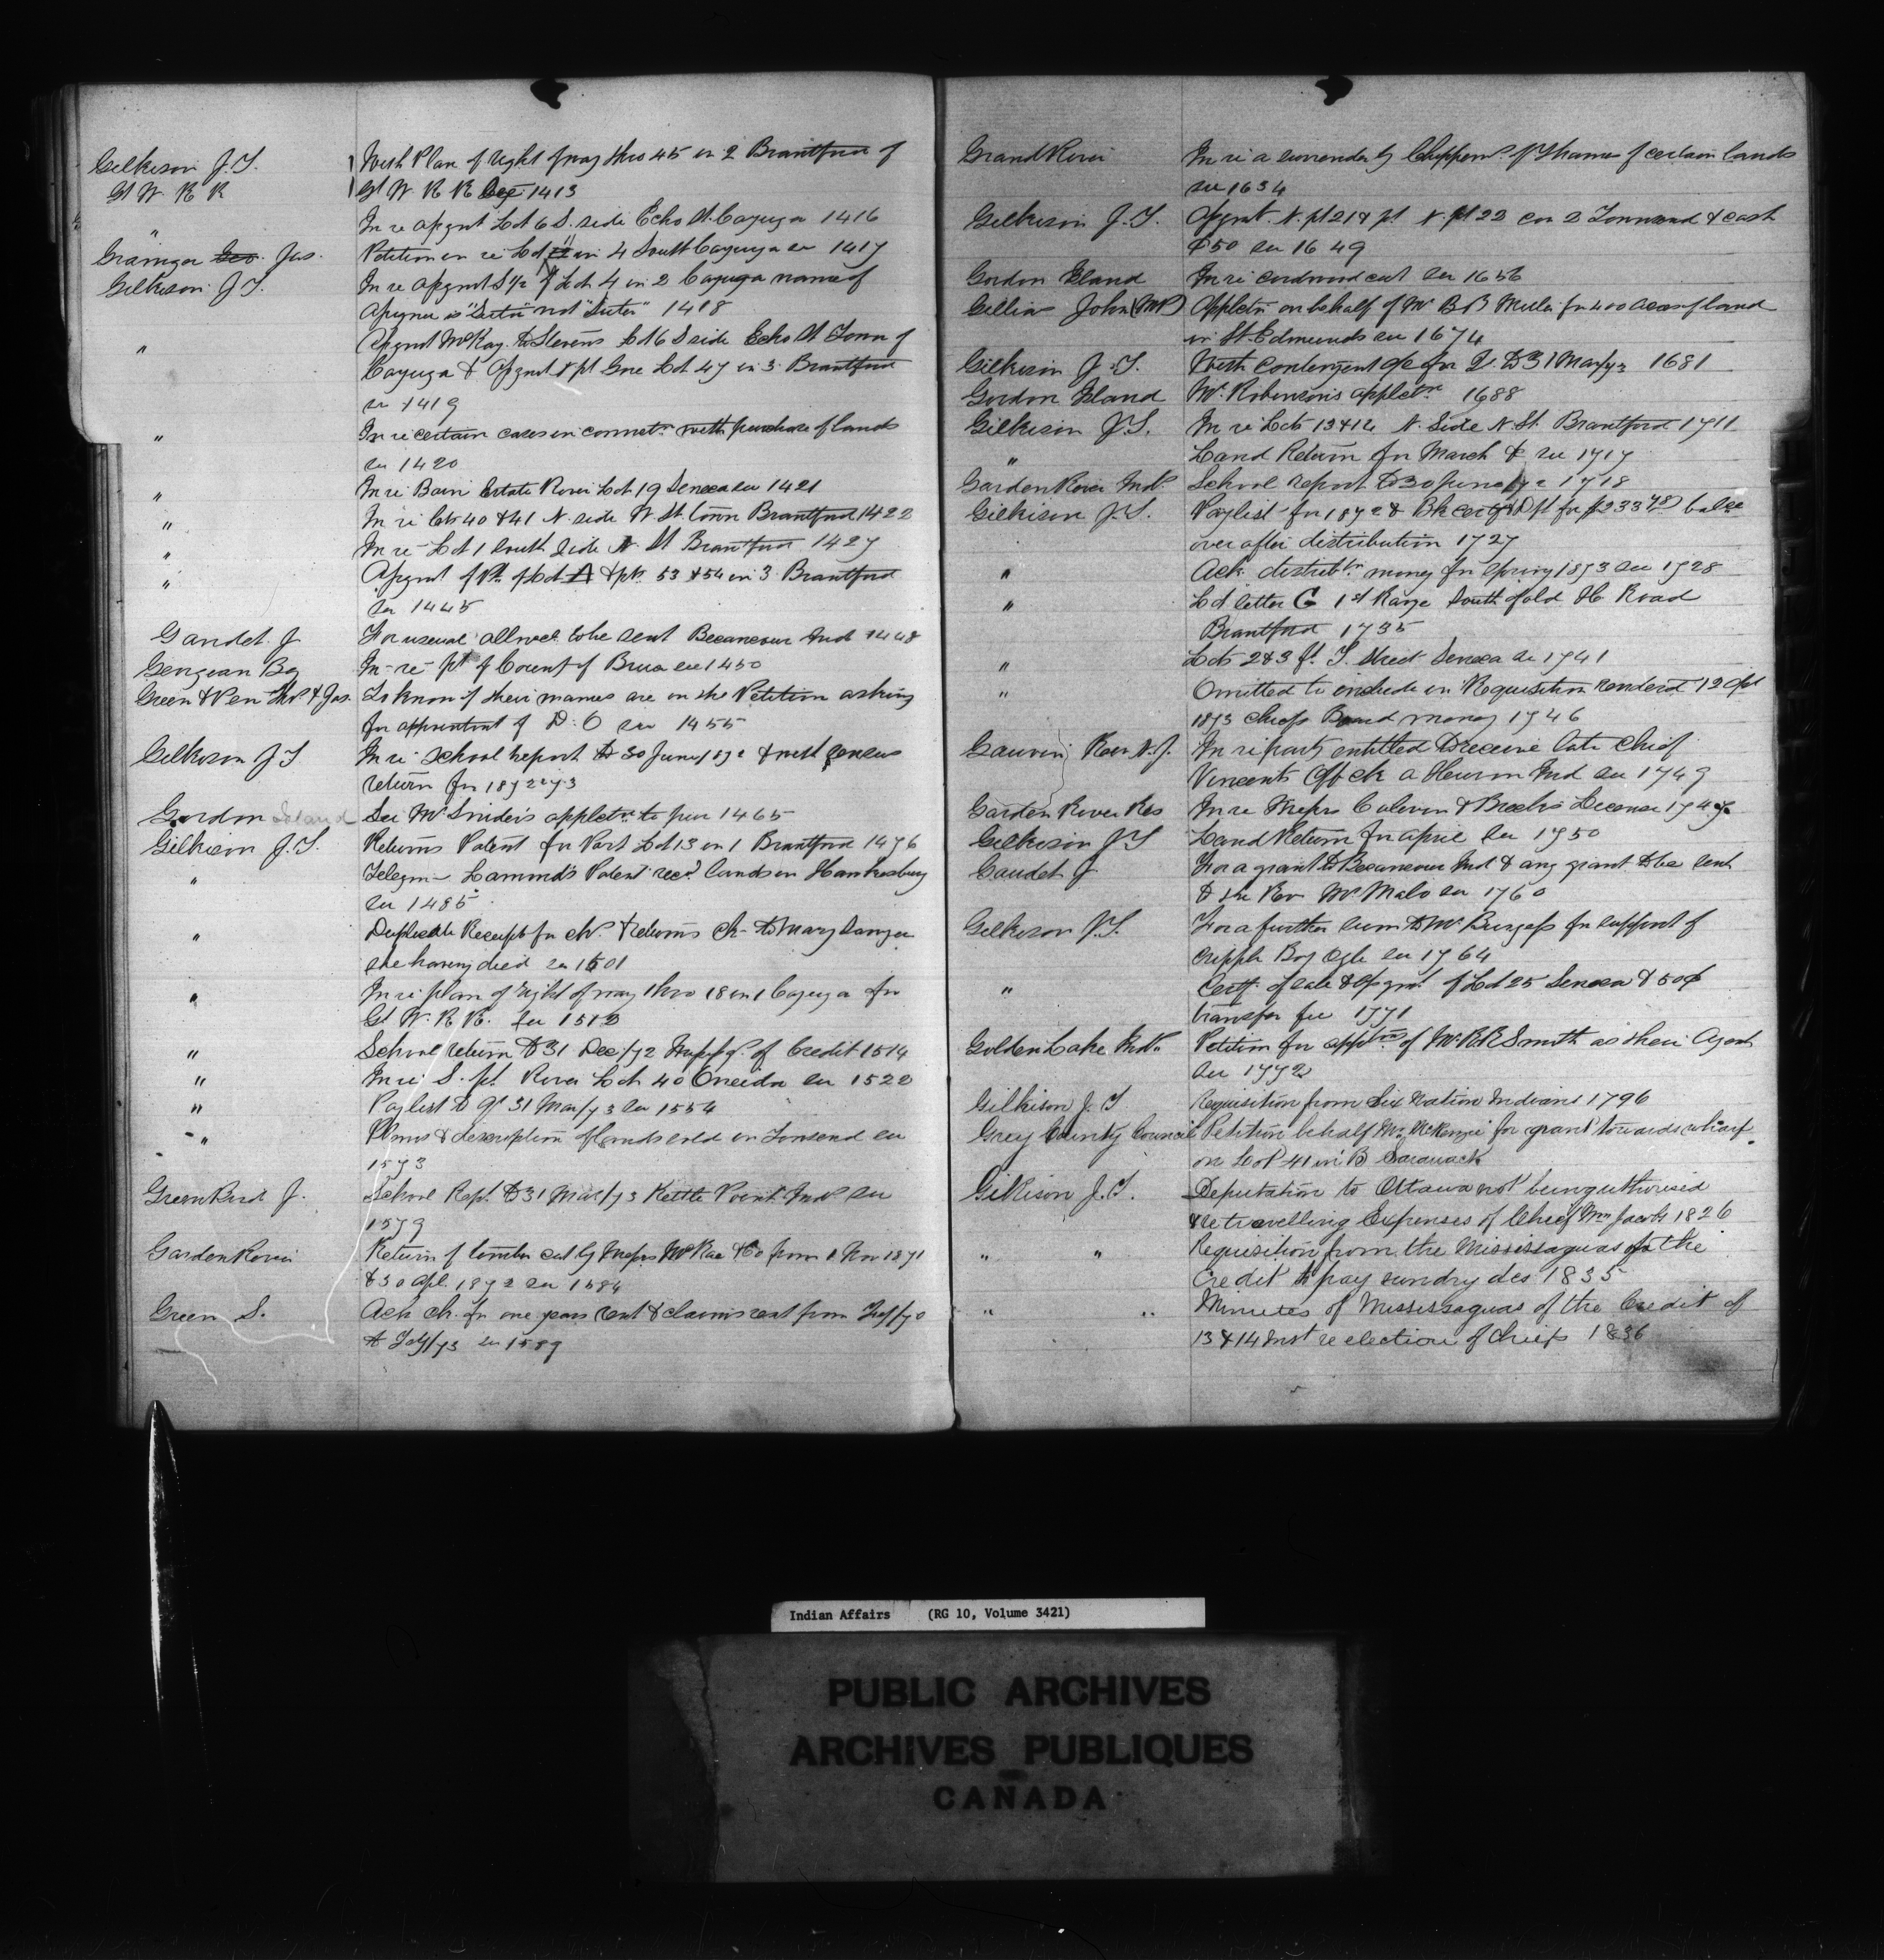 Gilkison J.T. With Plan of right of way thro 45 in 2 Brantford of
Gt W. R R Gt W. R R See 1413
" In re assgnt Lot 6 S. side Echo St. Cayuga 1416
Grainger Geo. Jas. Petition in re Lot 11 in 4 South Cayuga see 1417
Gilkison J.T. In re assgnt S ½ of Lot 4 in 2 Cayuga name of
Assgnee is "Suter" not "Suter" 1418
" Assgnt McKay to Stevens Lot 6 S side Echo St Town of
Cayuga & Assgnt pt Gore Lot 47 in 3 Brantford
see 1419
" In re certain cases in connectn with purchase of lands
see 1420
" In re Bain Estate River Lot 19 Seneca see 1421
" In re lots 40 & 41 N. side W St. Town Brantford 1422
" In re Lot 1 South Side N. St Brantford 1427
" Assgnt of Pt. of Lot A & pts. 53 & 54 in 3. Brantford
See 1445
Gaudet J For usual allnce to be sent Becancour Ind 1448
Georgian Bay In re pt of County of Bruce see 1450
Green & Pen Thos & Jas. To know if their names are on the Petition asking
for appointment of D. O see 1455
Gilkison J T In re School report to 30 June/1872 & with census
return for 1872 & 73
Gordon Island See Mr Snider's applctn to pur 1465
Gilkison J.T. Returns Patent for Part Lot 13 in 1 Brantford 1476
" Telegm - Lammond's Patent recd. lands in Hawkesbury
see 1485
" Duplicate Receipts for chs. & returns ch- to Mary Danger
she having died see 1501
" In re plan of right of way thro 18 in 1 Cayuga for
Gt. W. R R. See 1512
" School return to 31 Dec/72 Missgs. of Credit 1514
" In re S. pt. River Lot 40 Oneida see 1522
" Paylist to qr 31 Mar/73 see 1554
" Plans & description of lands sold in Townsend see
1573
Greenbird J. School Rept. to 31 Mar/73 Kettle Point Inds see
1579
Garden River Return of timber cut by Messrs McRae & Co from 1 Nov 1871
to 30 Apl. 1872 see 1584
Green S. Ack ch. for one years rent & claims rent from July/70
to July/73 see 1589
Grand River In re a surrender by Chippewas of Thames of certain lands
see 1634
Gilkison J.T. Assgnt. N. pt 21 & pt. N. pt 22 con 2 Townsend & cash
$50 see 1649
Gordon Island In re cordwood cut see 1656
Gillies John (MP) Applctn on behalf of Mr B B Miller for 400 acres of land
in St. Edmunds see 1674
Gilkison J.T. With contingent a/c for Qr. to 31 Mar/73 1681
Gordon Island Mr. Robinson's applctn 1688
Gilkison J.T. In re Lots 13 & 14 N. Side N. St. Brantford 1711
" Land Return for March & see 1717
Garden River Inds. School report to 30 June/72 1718
Gilkison J.T. Paylist for 1872 & Bk certf Dft for $233.78 balce
over after distribution 1727
" Ack. distributn. money for Spring 1873 see 1728
" Lot letter G 1st Range South of old H. Road
Brantford 1735
" Lots 2 & 3 ft. T. Street Seneca see 1741
" Omitted to include in Requisition rendered 12 Apl
1873 Chiefs Board money 1746
Gauvin Rev. N.J. In re party entitled to receive late Chief
Vincents Off ck a Huron Ind see 1749
Garden River Res In re Messrs Calvin & Breck's License 1747
Gilkison J T Land Return for April See 1750
Gaudet J For a grant to Becancour Ind & any grant to be sent
to the Rev Mr Malo see 1760
Gilkison J.T. For a further sum to Mr Burgess for support of
cripple Boy Ogle see 1764
" Certf. of sale & Assgnt. of Lot 25 Seneca & 50¢
transfer fee 1771
Golden Lake Inds Petition for apptmt of Mr R R Smith as their Agent
see 1772
Gilkison J. T Requisition from Six Nation Indians 1796
Grey County Council Petition behalf Mr McKenzie for grant towards wharf
on Lot 41 in B Sarawack
Gilkison J.T. Deputation to Ottawa not being authorised
& re travelling Expenses of Chief Wm Jacobs 1826
" " Requisition from the Mississaguas of the
Credit to pay sundry a/cs 1835
" " Minutes of Mississaguas of the Credit of
13 & 14 Inst re election of Chiefs 1836
Indian Affairs (RG 10, Volume 3421)
PUBLIC ARCHIVES
ARCHIVES PUBLIQUES
CANADA